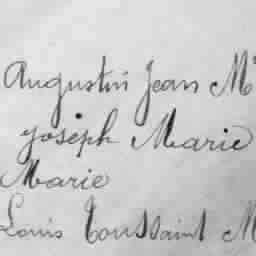 Augustin Jean M
Joseph Marie
Marie
Louis Toussaint M